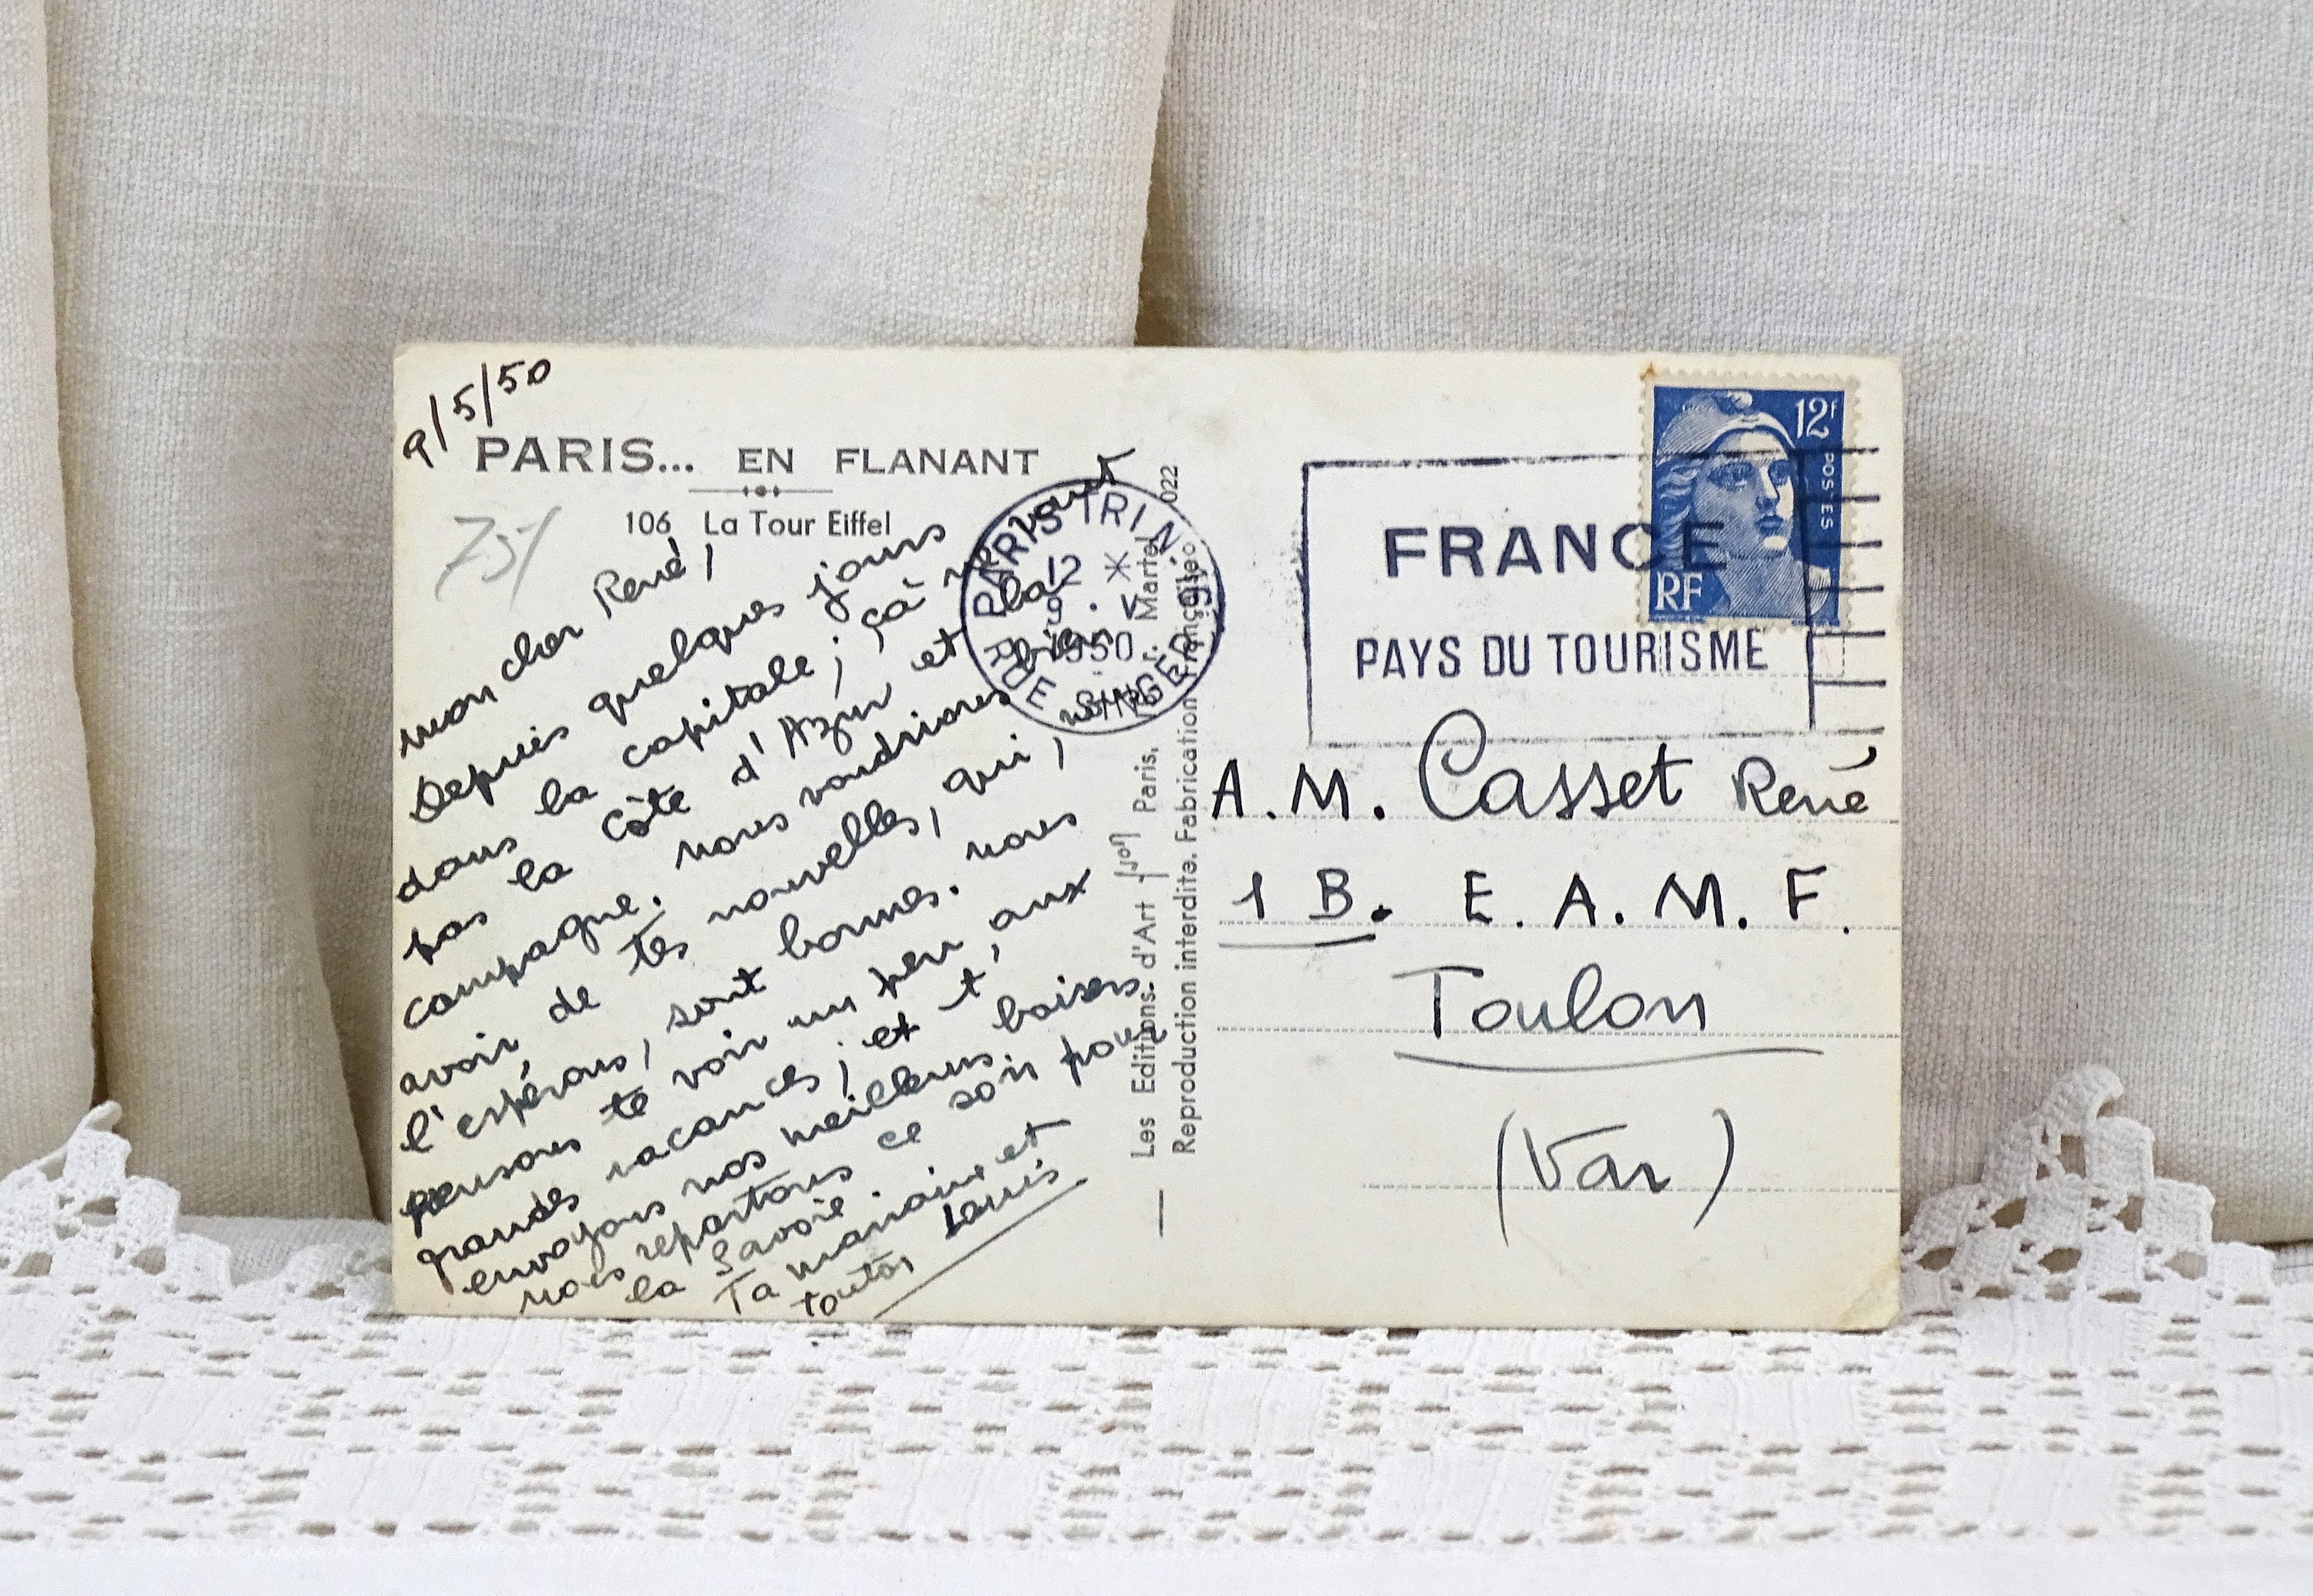 9/5/50
PARIS... EN FLANANT
106 La Tour Eiffel
75/
mon cher René,
Depuis quelques jours
dans la capitale ; çà ne vaut
pas la Côte d'Azur et la
campagne. nous voudrions bien
avoir de tes nouvelles, qui,
l'espérons, sont bonnes. nous
pensons te voir un peu, aux
grandes vacances ; et t
envoyons nos meilleurs baisers
nous repartons ce soir pour
la Savoie.
Ta marraine et
tonton Louis
PARIS TRI N
12 *
9 . V
1950
RUE SINGER
Les Editions d'Art Yvon Paris.
Reproduction interdite. Fabrication Française
FRANCE
PAYS DU TOURISME
12F
POSTES
RF
A. M. Casset René
1 B. E. A. M. F.
Toulon
(Var)